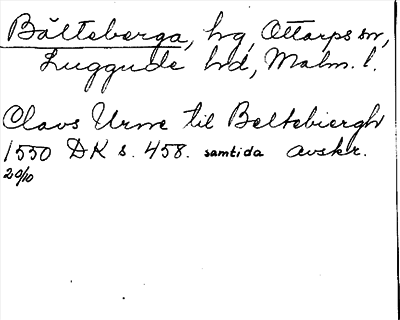 Bälteberga, hg, Ottarps sn,
Luggude hd, Malm. l.
Claus Urne til Beltebiergh
1550 DK s. 458. samtida avskr.
20/10